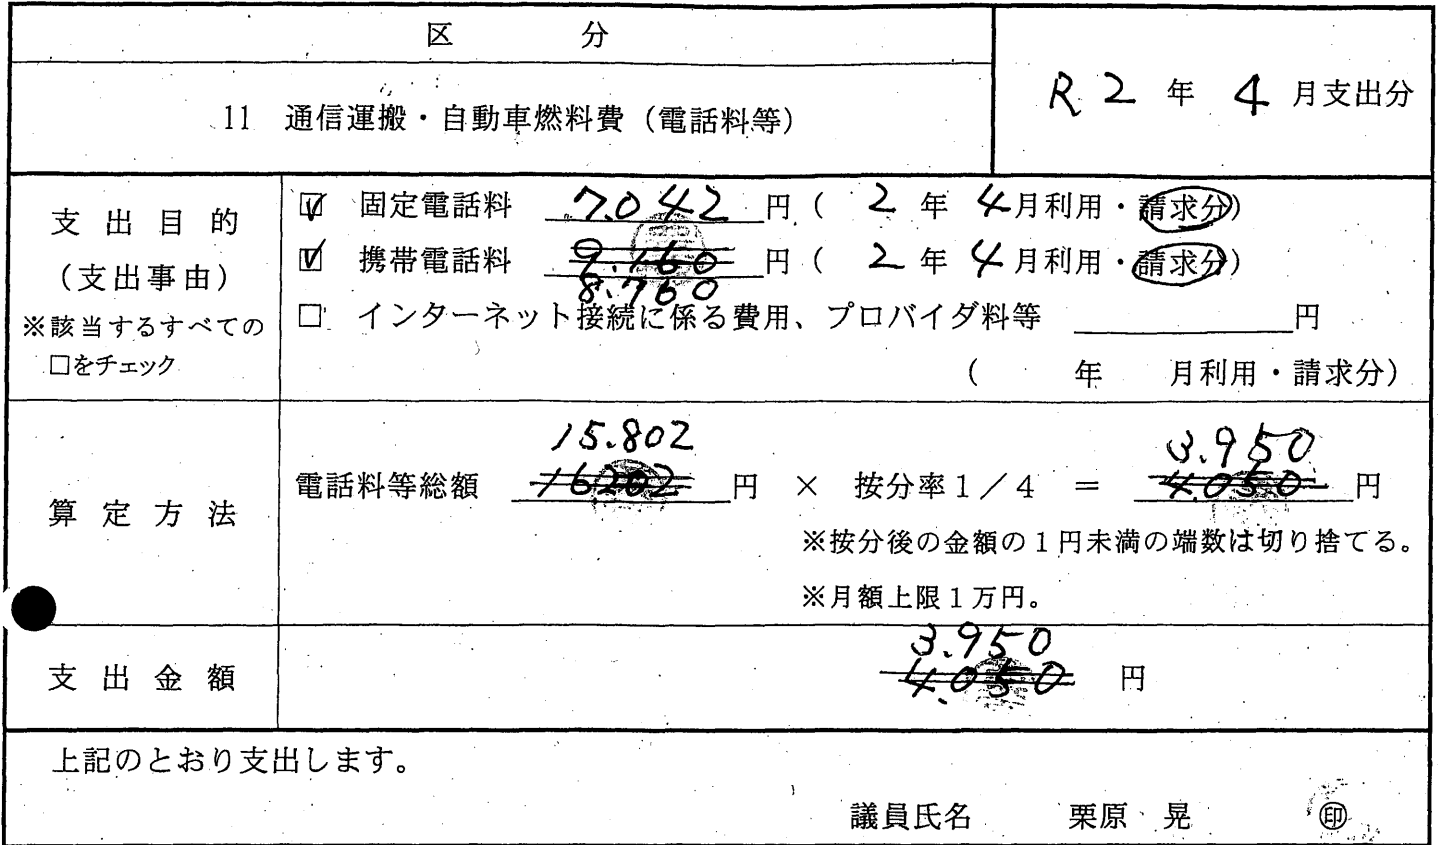 区 分
11 通信運搬・自動車燃料費（電話料等）
R2 年 4 月支出分
支出目的
（支出事由）
※該当するすべての
□をチェック
☑ 固定電話料 7.042 円（ 2 年 4月利用・請求分）
☑ 携帯電話料 9.160 円（ 2 年 4月利用・請求分）
8.760
□ インターネット接続に係る費用、プロバイダ料等 円
（ 年 月利用・請求分）
算定方法
15.802 3.950
電話料等総額 16202 円 × 按分率１／４ ＝ 4.050 円
※按分後の金額の１円未満の端数は切り捨てる。
※月額上限１万円。
支出金額
3.950
4.050 円
上記のとおり支出します。
議員氏名 栗原 晃 ㊞